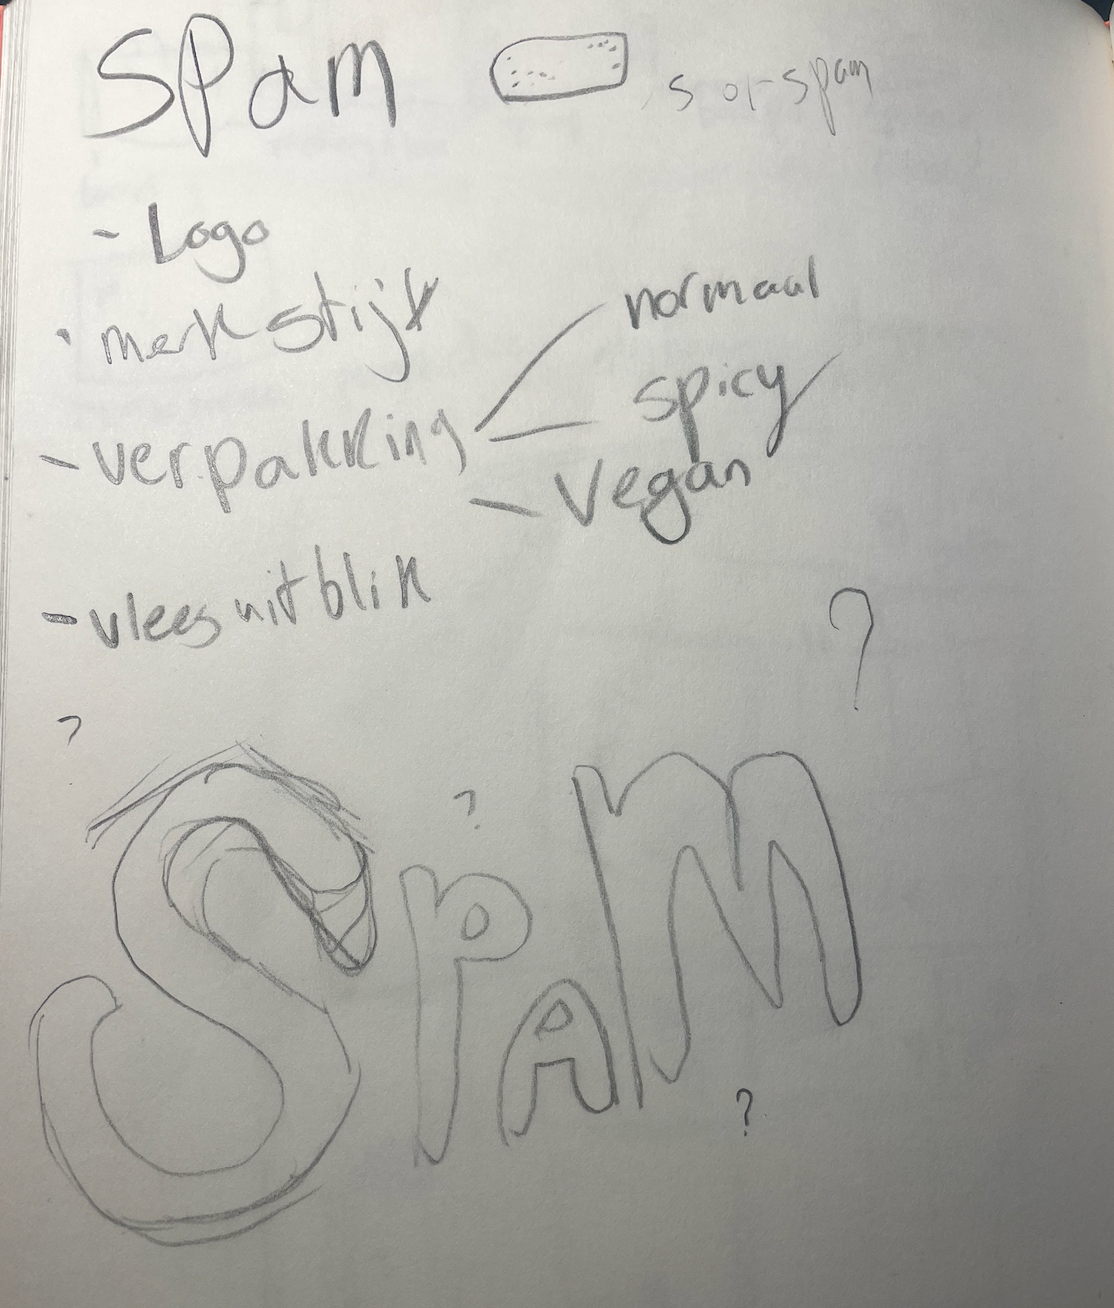 SPam
s or spam
- Logo
· merk stijl
- verpakking
normaal
spicy
- Vegan
- vlees uit blik
?
?
?
SPAM
?